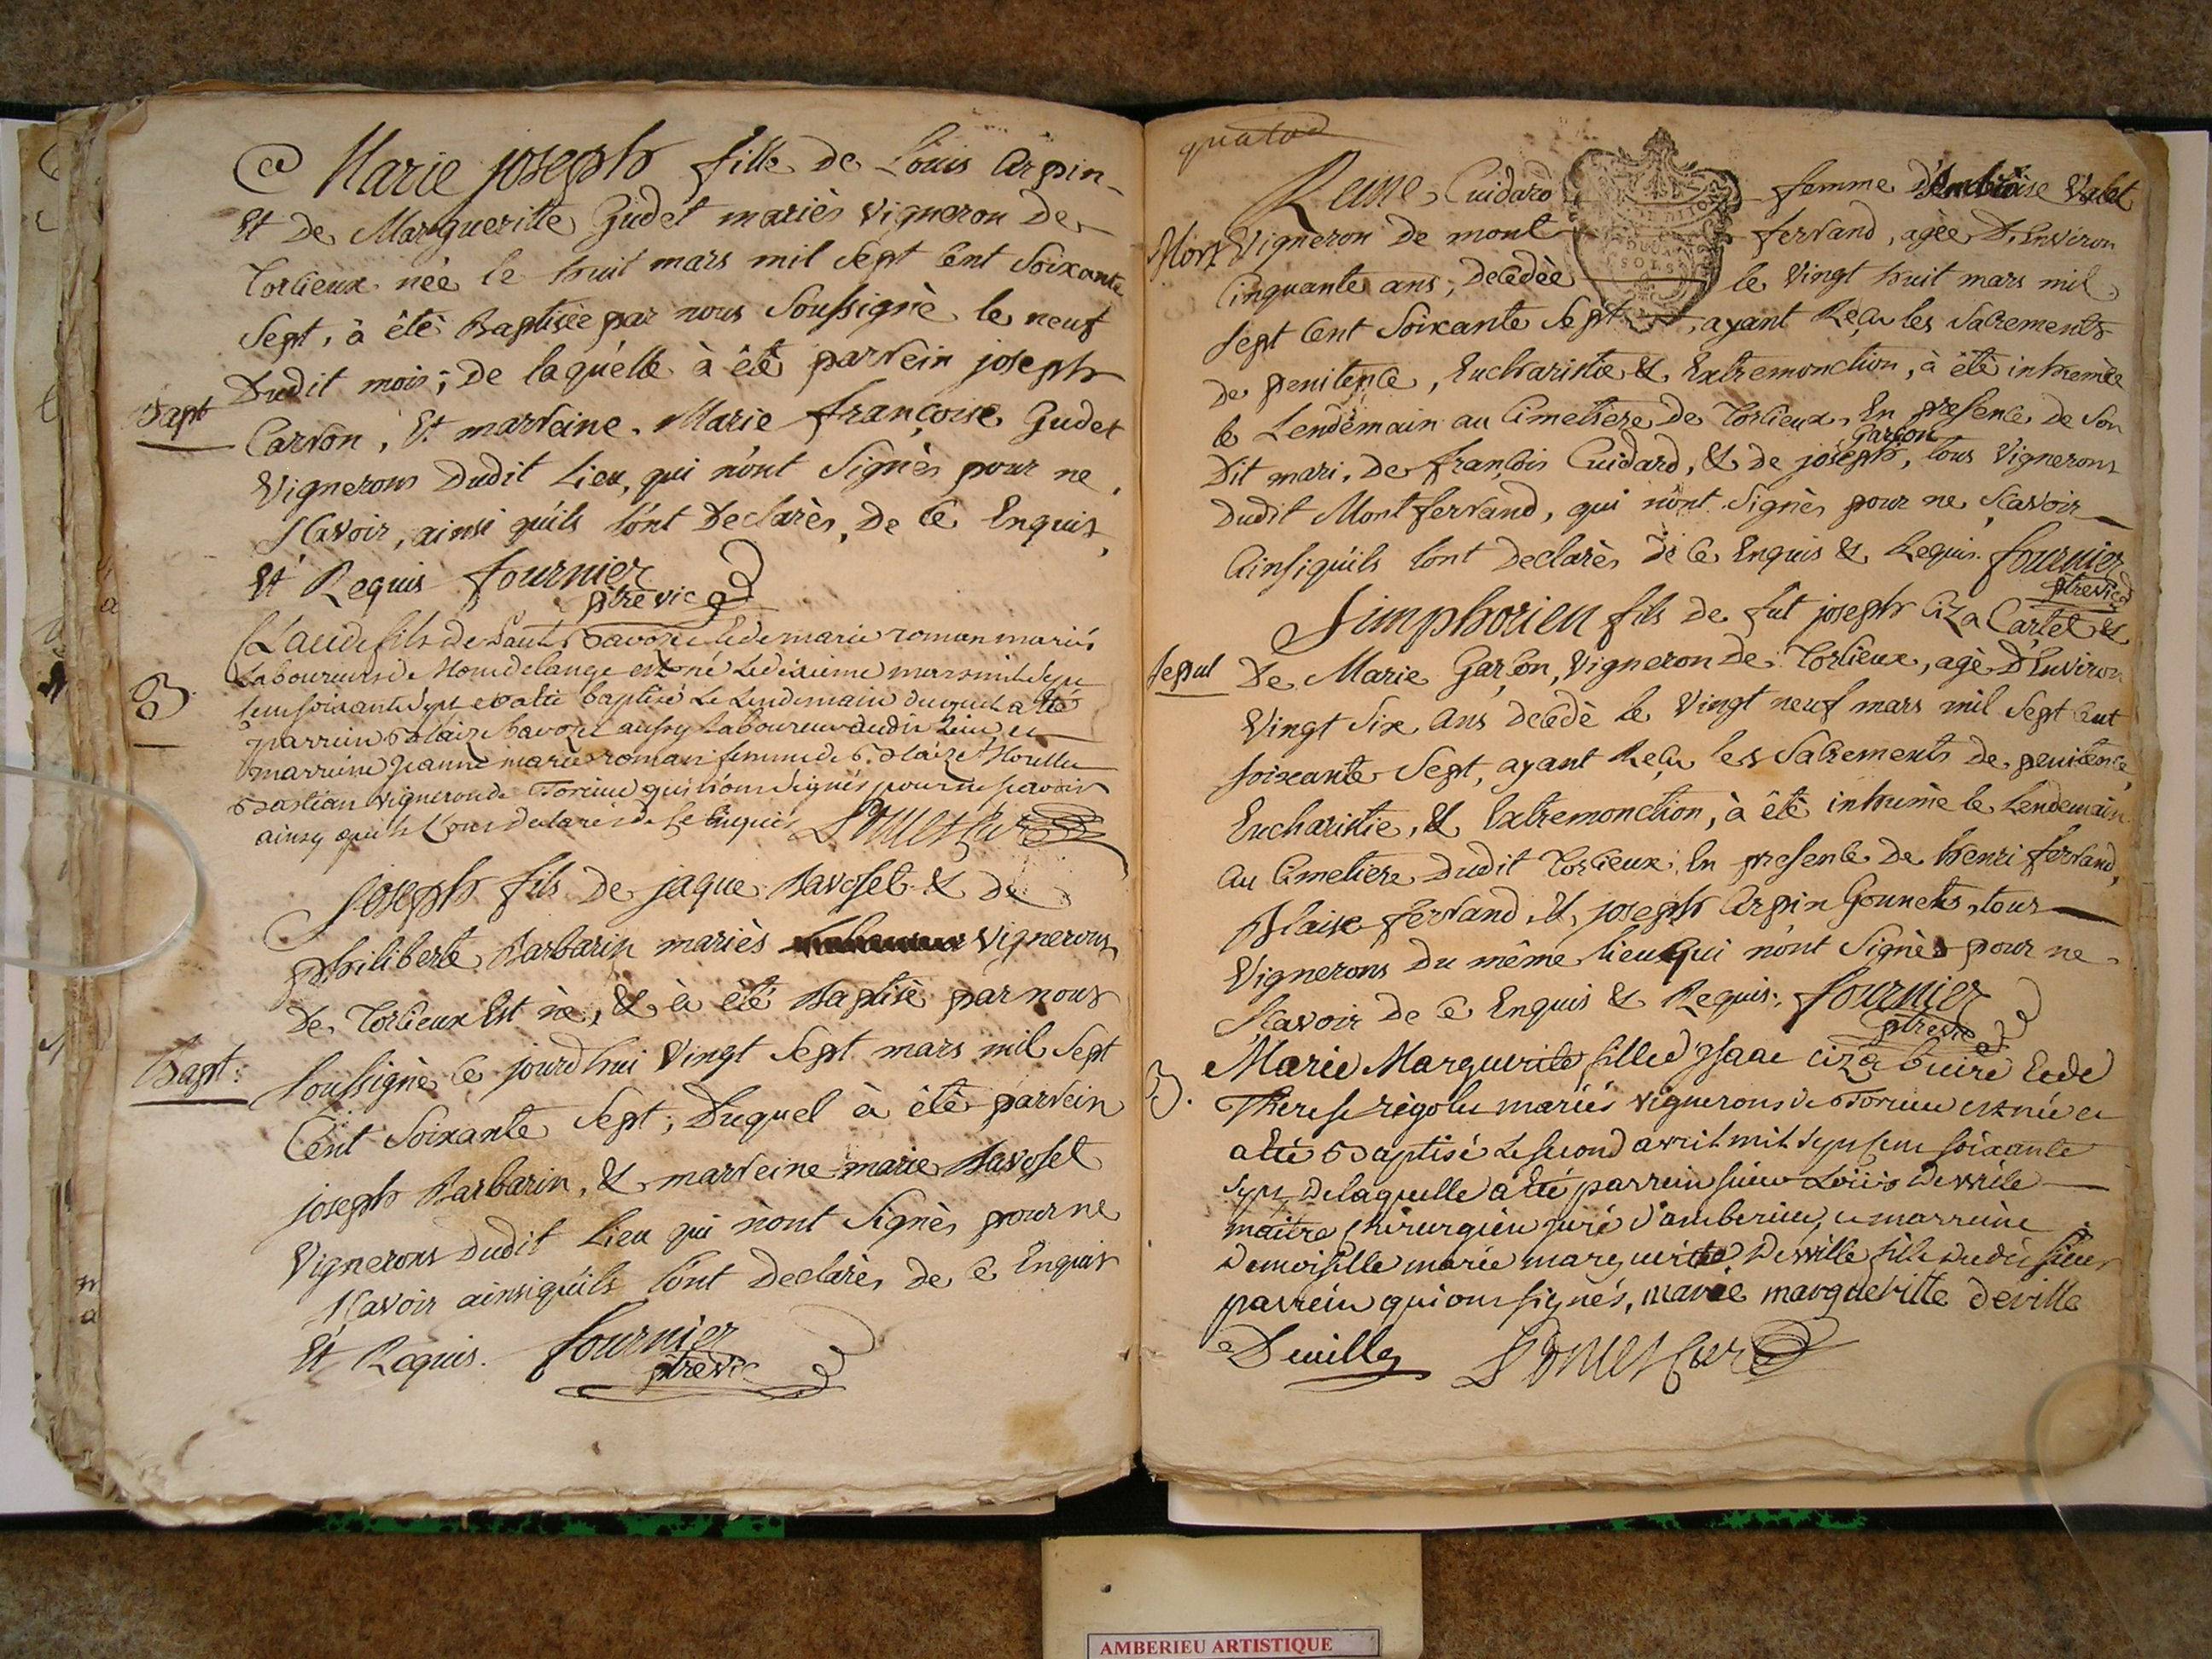 Marie joseph fille de Louis Arpin
Et de Marguerite Gudet mariès vigneron de
Torcieux née le huit mars mil Sept Cent Soixante
Sept, à étè Baptisée par nous Soussignè le neuf
Dudit mois; de laquelle à étè parrein joseph
Bapt
Carron, Et marreine Marie françoise Gudet
Vignerons dudit Lieu, qui n'ont Signès pour ne
Scavoir, ainsi qu'ils l'ont Declarès, de Ce Enquis,
Et Requis fournier
ptre vic
Claude fils de Savozet et de marie roman mariés
Laboureurs de Mondelange est né Le dixieme mars mil Sept
Cent soixante Sept et a été baptisé Le Lendemain duquel a été
B.
parrein blaize Savozet aussy Laboureur dudit Lieu, et
marreine jeanne marie roman femme de blaize
bastian vigneron de Torcieu qui n'ont Signés pour ne scavoir
ainsy qu'ils L'ont declarés de ce Enquis
Joseph fils de jaque Savoset & de
philiberte Barbarin mariès vignerons
De Torcieux Est nè, & à étè Baptisè par nous
Bapt:
Soussignè Ce jourd'hui Vingt Sept mars mil Sept
Cent Soixante Sept; Duquel à étè parrein
joseph Barbarin, & marreine marie Savoset
Vignerons dudit Lieu qui n'ont Signès pour ne
Scavoir ainsi qu'ils l'ont Declarès de Ce Enquis
Et Requis. fournier
ptre vic
Reine Cuidard femme d'Ambroise Valet
Mort Vigneron de mont ferrand, agèe D'Environ
Cinquante ans, Decedèe le Vingt huit mars mil
Sept Cent Soixante Sept, ayant Reçu les Sacrements
de penitence, Eucharistie & Extremonction, à étè inhumèe
le Lendemain au Cimetiere de Torcieux, En presence de Son
Garçon
Dit mari, de françois Cuidard, & de joseph, tous Vignerons
dudit Montferrand, qui n'ont Signès pour ne Scavoir
Ainsi qu'ils l'ont Declarès de Ce Enquis & Requis. fournier
ptre vic
Simphorien fils de fut joseph Ciza Cartet &
Sepul De Marie Garçon, Vigneron de Torcieux, agè D'Environ
Vingt Six ans decedè le Vingt neuf mars mil Sept Cent
Soixante Sept, ayant Reçu les Sacrements de penitence,
Eucharistie, & Extremonction, à étè inhumè le Lendemain
Au Cimetiere dudit Torcieux En presence de henri ferrand,
Blaise ferrand, & joseph Arpin Gounets, tous
Vignerons du même lieu qui n'ont Signès pour ne
Scavoir de Ce Enquis & Requis. fournier
ptre vic
Marie Marguerite fille d'Isaac ciza buire Et de
B. Therese rigolet mariés vignerons de Torcieu est née et
a été baptisé Le second avril mil sept cent soixante
Sept, De laquelle a été parrein sieur Loüis Deville
maitre Chirurgien juré d'amberieu, et marreine
Demoiselle marie marguerite Deville fille dudit sieur
parrein qui ont signés, marie margueritte deville
Deville
AMBERIEU ARTISTIQUE